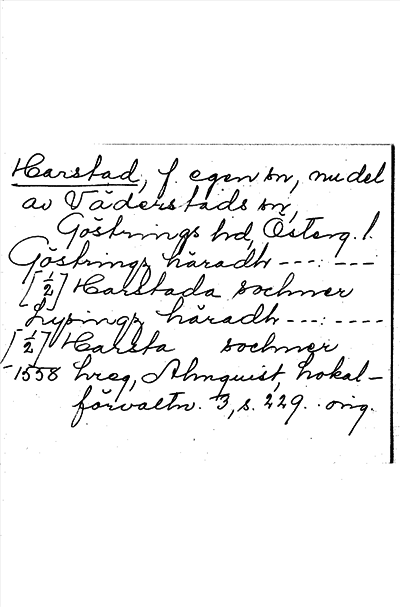 Harstad, f. egen sn, nu del
av Väderstads sn,
Göstrings hd, Österg. l.
Göstringz häradh ---:---
[½] Harstada sochner
Lysingz häradh ---:----
[½] Harsta sochner
1558 hreg, Almquist, Lokal-
förvaltn. 3, s. 229. orig.